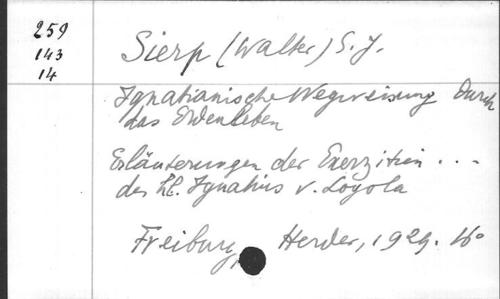 259
143
14
Sierp (Walter) S. J.
Ignatianische Wegweisung durch
das Ordensleben
Erläuterungen der Exerzitien ...
des hl. Ignatius v. Loyola
Freiburg, Herder, 1929. 16°